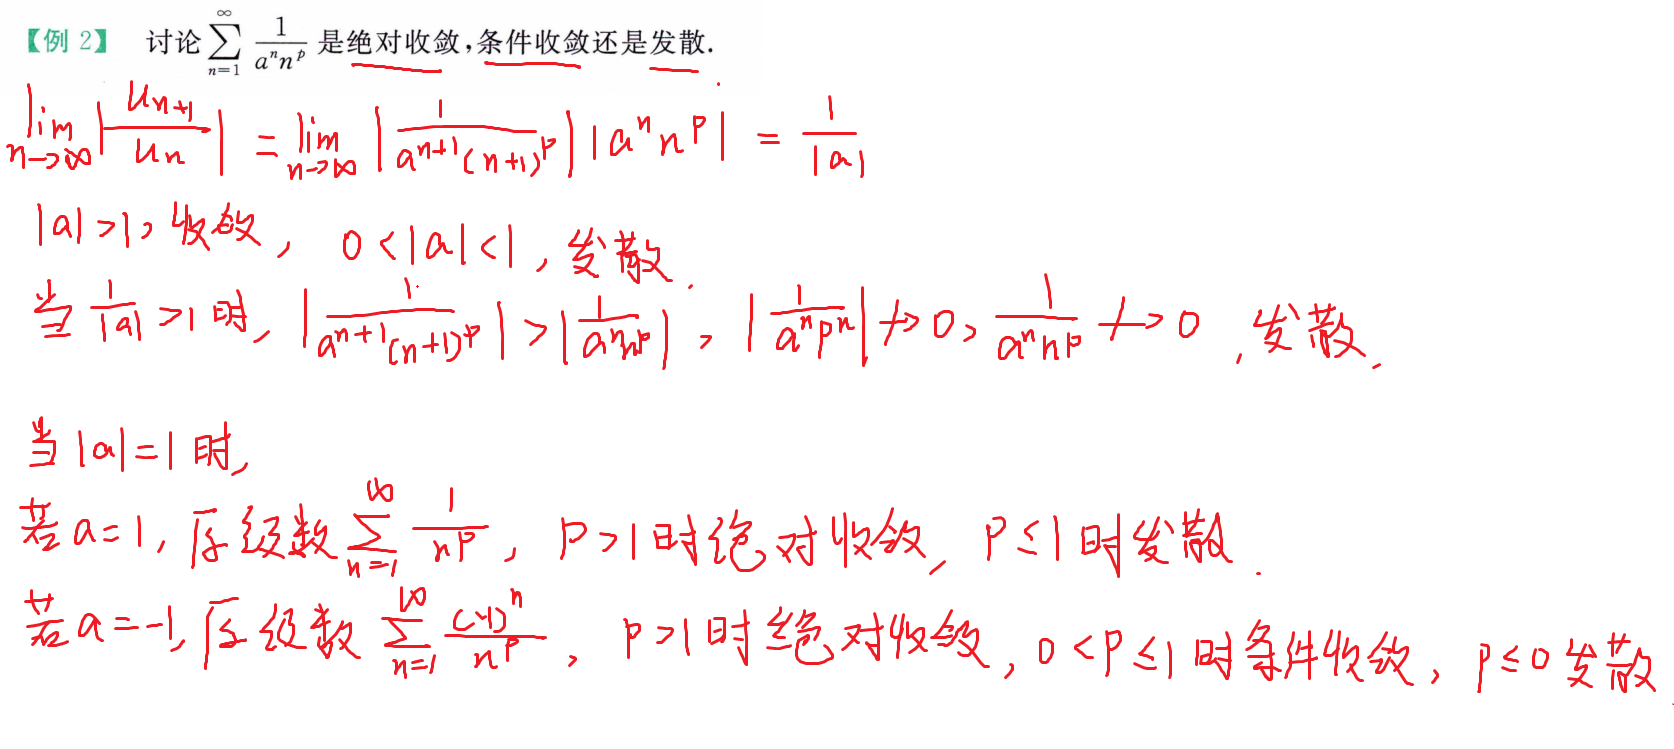 【例 2】 讨论 $\sum_{n=1}^{\infty} \frac{1}{a^n n^p}$ 是绝对收敛,条件收敛还是发散.
$\lim_{n \to \infty} \left| \frac{u_{n+1}}{u_n} \right| = \lim_{n \to \infty} \left| \frac{1}{a^{n+1}(n+1)^p} \right| |a^n n^p| = \frac{1}{|a|}$
$|a|>1$, 收敛, $0<|a|<1$, 发散.
当 $\frac{1}{|a|}>1$ 时, $\left| \frac{1}{a^{n+1}(n+1)^p} \right| > \left| \frac{1}{a^n n^p} \right|$, $\left| \frac{1}{a^n p^n} \right| \not\to 0$, $\frac{1}{a^n n^p} \not\to 0$, 发散.
当 $|a|=1$ 时,
若 $a=1$, 原级数 $\sum_{n=1}^{\infty} \frac{1}{n^p}$, $p>1$ 时绝对收敛, $p \le 1$ 时发散.
若 $a=-1$, 原级数 $\sum_{n=1}^{\infty} \frac{(-1)^n}{n^p}$, $p>1$ 时绝对收敛, $0<p \le 1$ 时条件收敛, $p \le 0$ 发散.